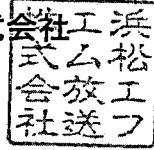 会社
浜松エフ
エム放送
株式会社